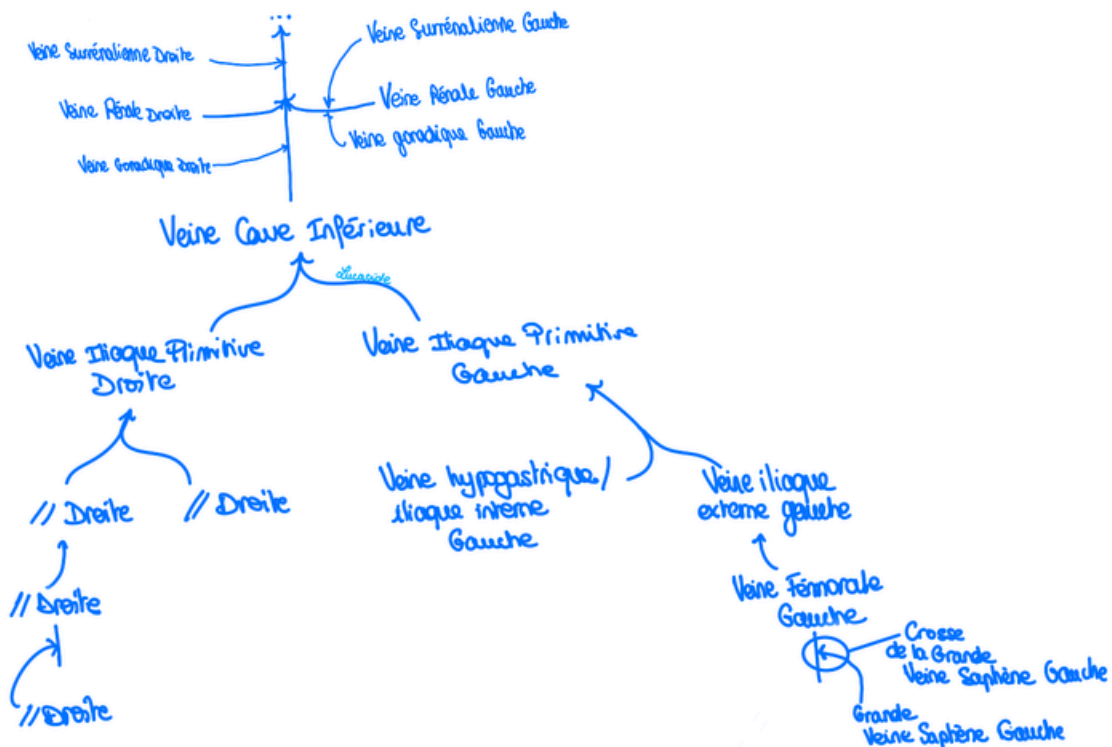 ...
Veine Surrénalienne Gauche
Veine Surrénalienne Droite
Veine Rénale Gauche
Veine Rénale Droite
Veine gonadique Gauche
Veine Gonadique Droite
Veine Cave Inférieure
Lucaside
Veine Iliaque Primitive
Droite
Veine Iliaque Primitive
Gauche
// Droite
// Droite
Veine hypogastrique/
iliaque interne
Gauche
Veine iliaque
externe gauche
// Droite
Veine Fémorale
Gauche
Crosse
de la Grande
Veine Saphène Gauche
// Droite
Grande
Veine Saphène Gauche